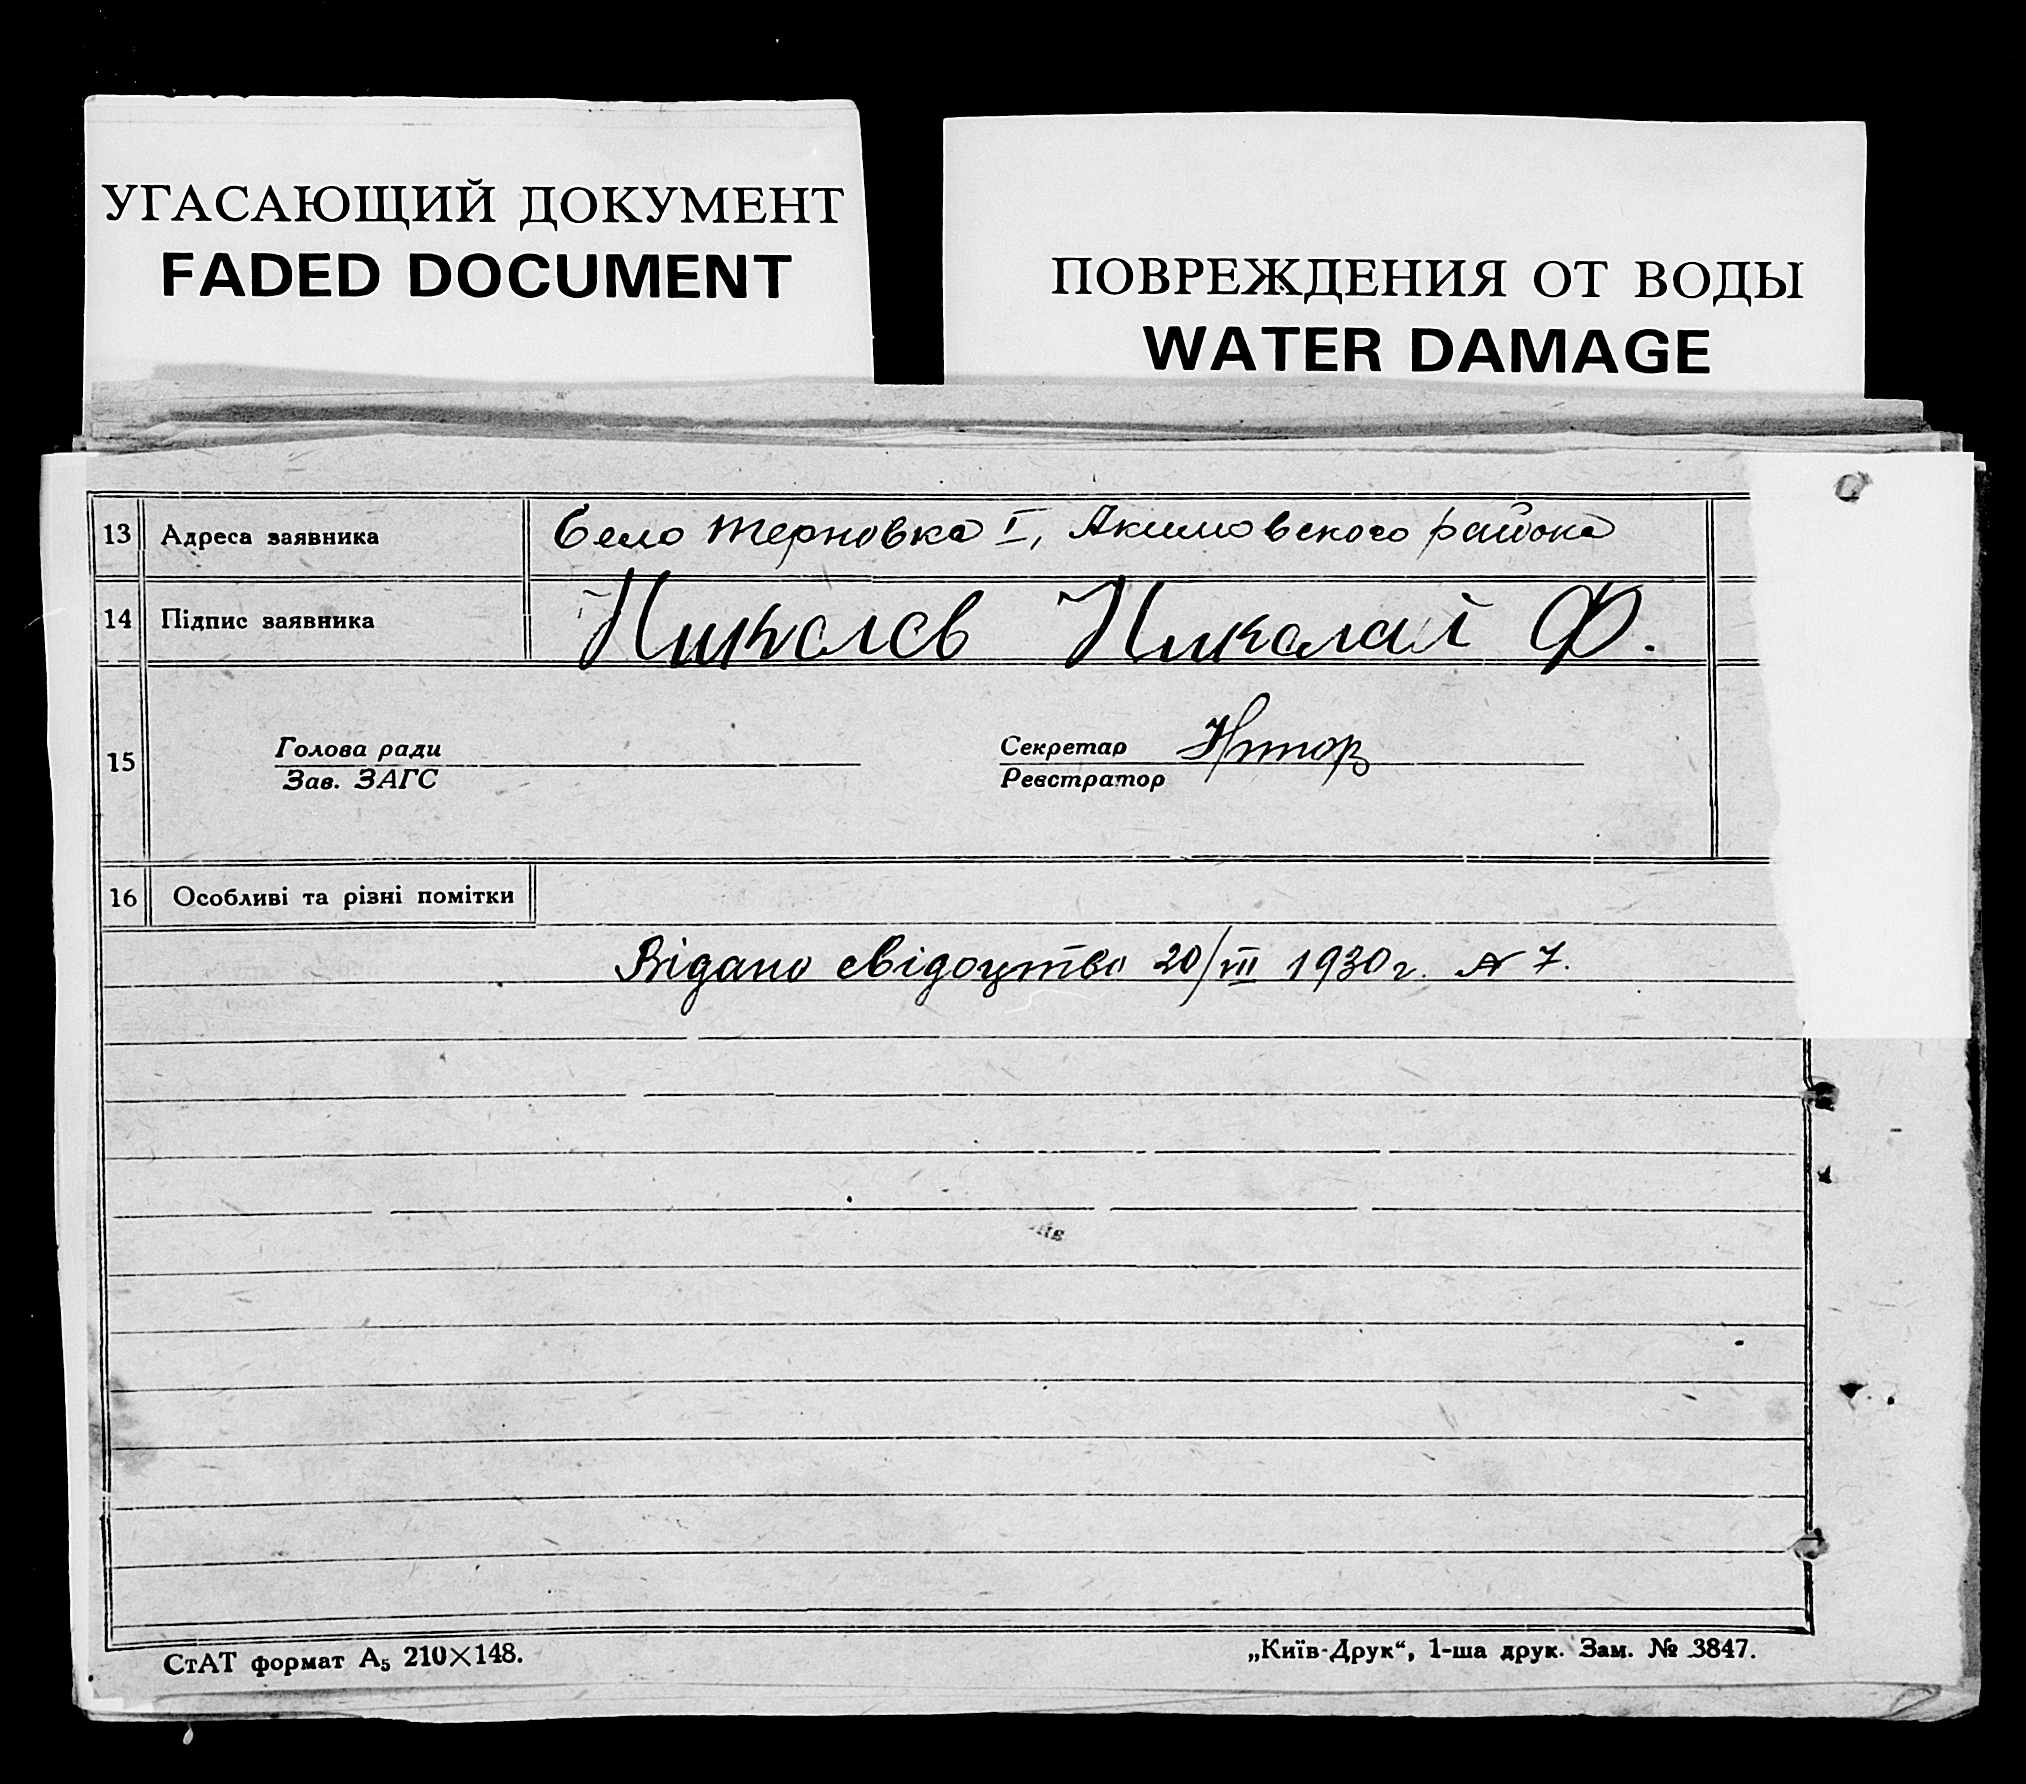 УГАСАЮЩИЙ ДОКУМЕНТ
FADED DOCUMENT
ПОВРЕЖДЕНИЯ ОТ ВОДЫ
WATER DAMAGE
13 Адреса заявника Село Терновка I, Акимовского района
14 Підпис заявника Николаев Николай Ф.
15 Голова ради
Зав. ЗАГС
Секретар
Реєстратор
16 Особливі та різні помітки
Відано свідоцтво 20/VII 1930 г. № 7.
СтАТ формат А₅ 210×148.
„Київ-Друк“, 1-ша друк. Зам. № 3847.